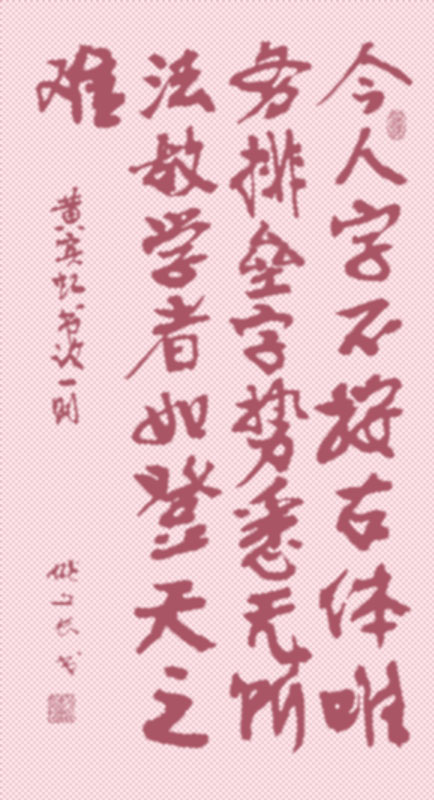 今人字不按古体唯
务排垒字势悉无所
法教学者如登天之
难
黄宾虹书论一则